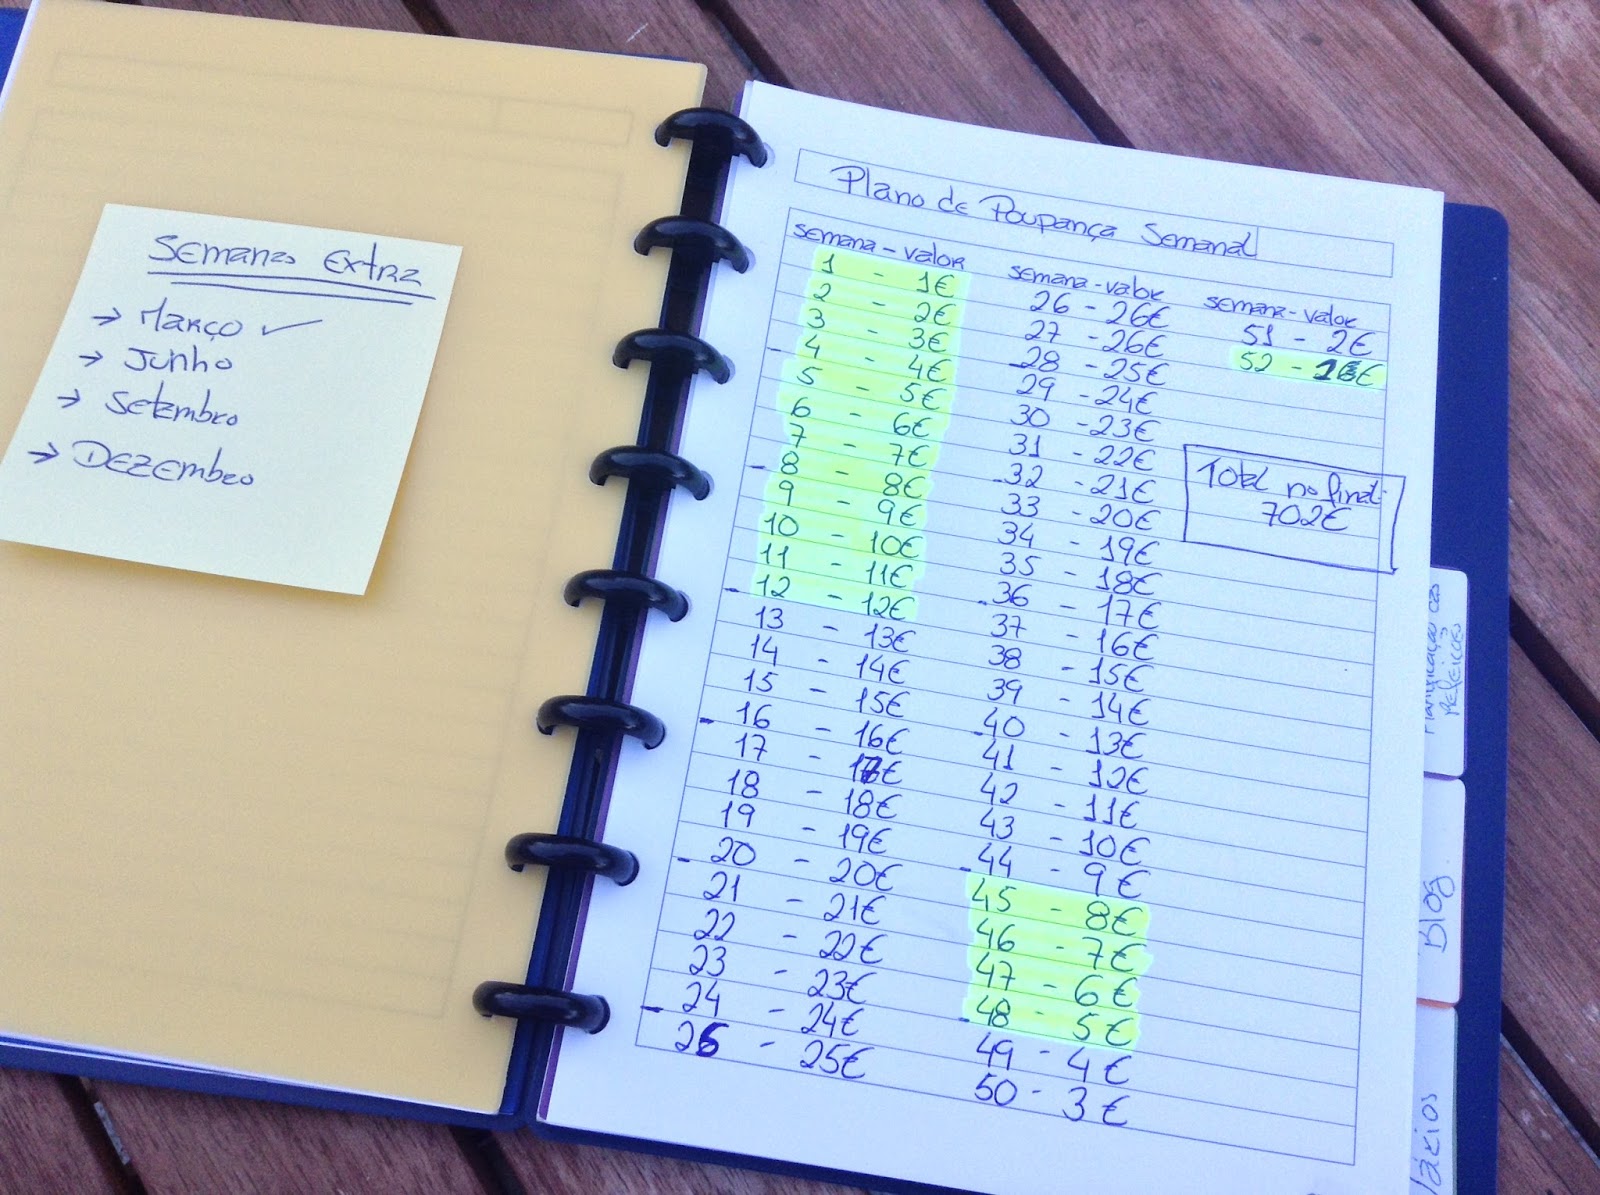 Semanas Extra
→ Março ✓
→ Junho
→ Setembro
→ Dezembro
Plano de Poupança Semanal
semana - valor
1 - 1€
2 - 2€
3 - 3€
- 4 - 4€
5 - 5€
6 - 6€
7 - 7€
- 8 - 8€
9 - 9€
10 - 10€
11 - 11€
- 12 - 12€
13 - 13€
14 - 14€
15 - 15€
- 16 - 16€
17 - 17€
18 - 18€
19 - 19€
- 20 - 20€
21 - 21€
22 - 22€
23 - 23€
- 24 - 24€
25 - 25€
semana - valor
26 - 26€
27 - 26€
- 28 - 25€
29 - 24€
30 - 23€
31 - 22€
- 32 - 21€
33 - 20€
34 - 19€
35 - 18€
- 36 - 17€
37 - 16€
38 - 15€
39 - 14€
- 40 - 13€
41 - 12€
42 - 11€
43 - 10€
- 44 - 9€
45 - 8€
46 - 7€
47 - 6€
- 48 - 5€
49 - 4€
50 - 3€
semana - valor
51 - 2€
52 - 1€
Total no final:
702€
Planificação das
Refeições
Blog